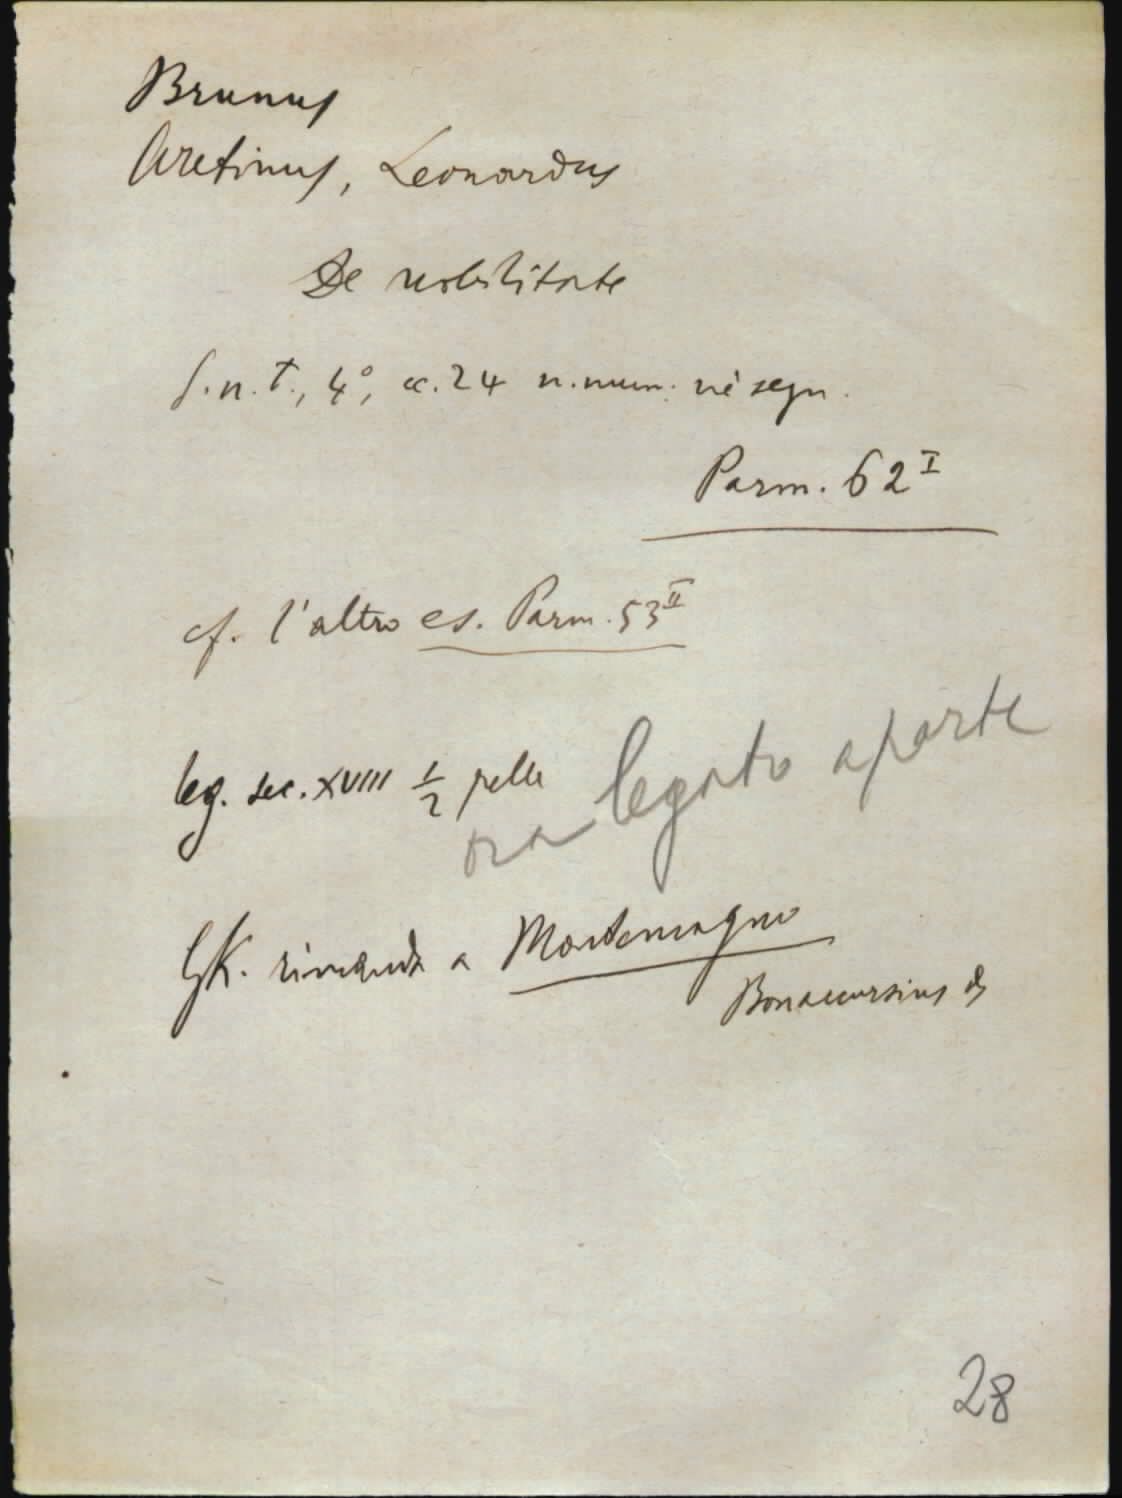 Brunus
Aretinus, Leonardus
De nobilitate
S.n.t., 4°, cc. 24 n. num. nè segn.
Parm. 62 I
cf. l'altro es. Parm. 53 II
leg. sec. XVIII 1/2 pelle
ora legato a parte
GK. rimanda a Montemagno
Bonaccursius de
28